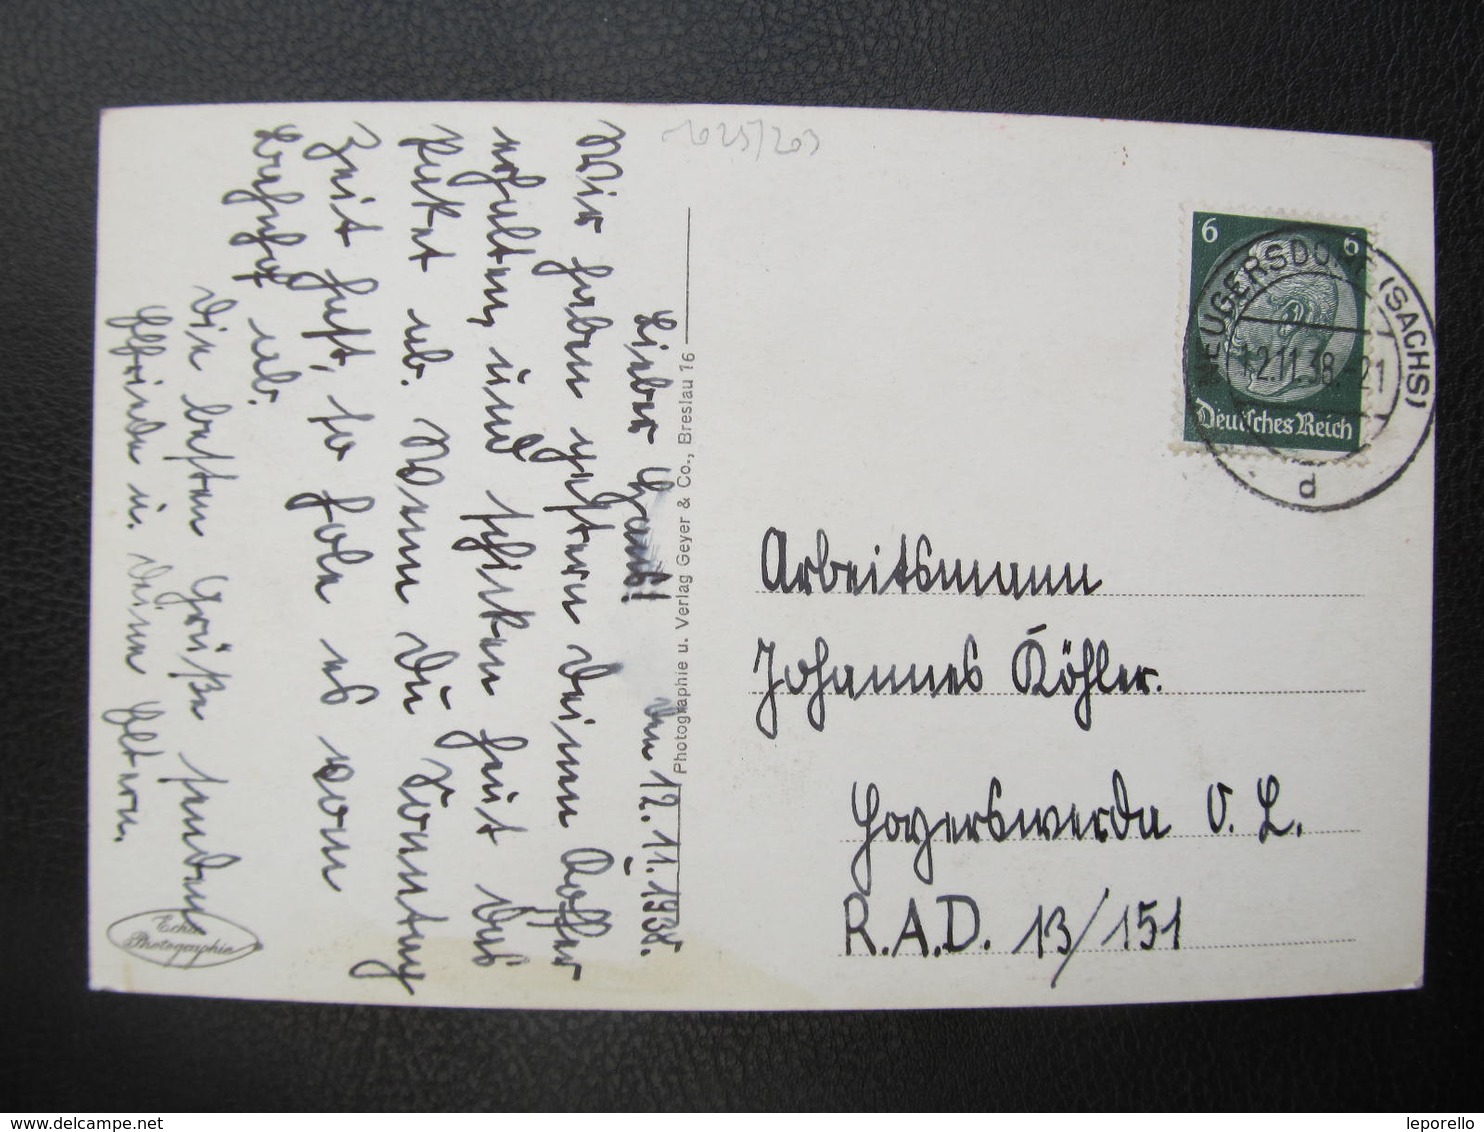 1025/203
den 12.11.1938.
Lieber Hans!
Wir haben gestern Deinen Koffer
erhalten, und schicken heut das
Paket ab. Wenn Du Sonntag
Zeit hast, so hole es vom
Bahnhof ab.
Die besten Grüße senden
Elfriede u. Deine Eltern.
Photographie u. Verlag Geyer & Co., Breslau 16
Echte
Photographie
6 6
Deutsches Reich
NEUGERSDORF (SACHS)
12.11.38. 21
d
Arbeitsmann
Johannes Köhler.
Hoyerswerda O. L.
R.A.D. 13/151
delcampe.net
leporello